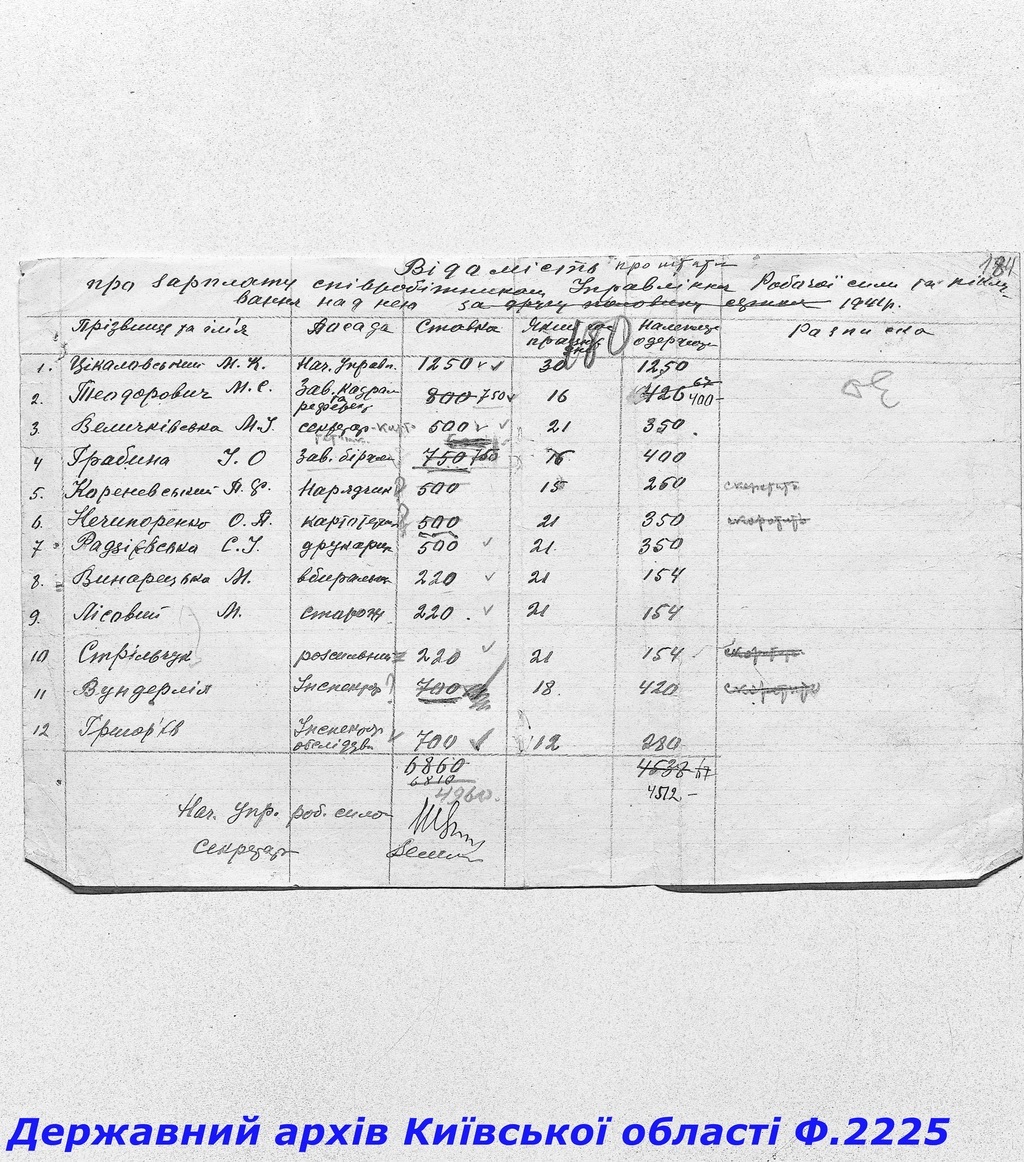 184
Відамість про штати
про зарплату співробітникам Управління Робочої сили та піклу-
вання над нею за другу половину 1941р.
Прізвище та ім'я Пасада Ставка 180 Належить одержати Розписка
1. Цікаловський М. К. Нач. Управл. 1250 30 1250
2. Теодорович М. Є. Зав. кадрам та 800 750 16 426 67 400-
3. Величківська М. І. секретар 500 21 350
4 Грабина І. О Зав. біржею 750 750 16 400
5. Кореневський Нарядчик 500 15 260 скоротить
6. Нечипоренко О. П. картотетчик 500 21 350 скоротить
7 Радзієвська С. І. друкарка 500 21 350
8. Винарецька М. вбиральн 220 21 154
9. Лісовий М. сторож 220 21 154
10 Стрільчук розсильний 220 21 154 скоротить
11 Вундерліх Інспектор? 700 18 420 скоротить
12 Григор'єв Інспектор обслідув 700 12 280
6860 4638 67
6810 4512.-
4960.
Нач. Упр. роб. силою
Секретарь
Державний архів Київської області Ф.2225